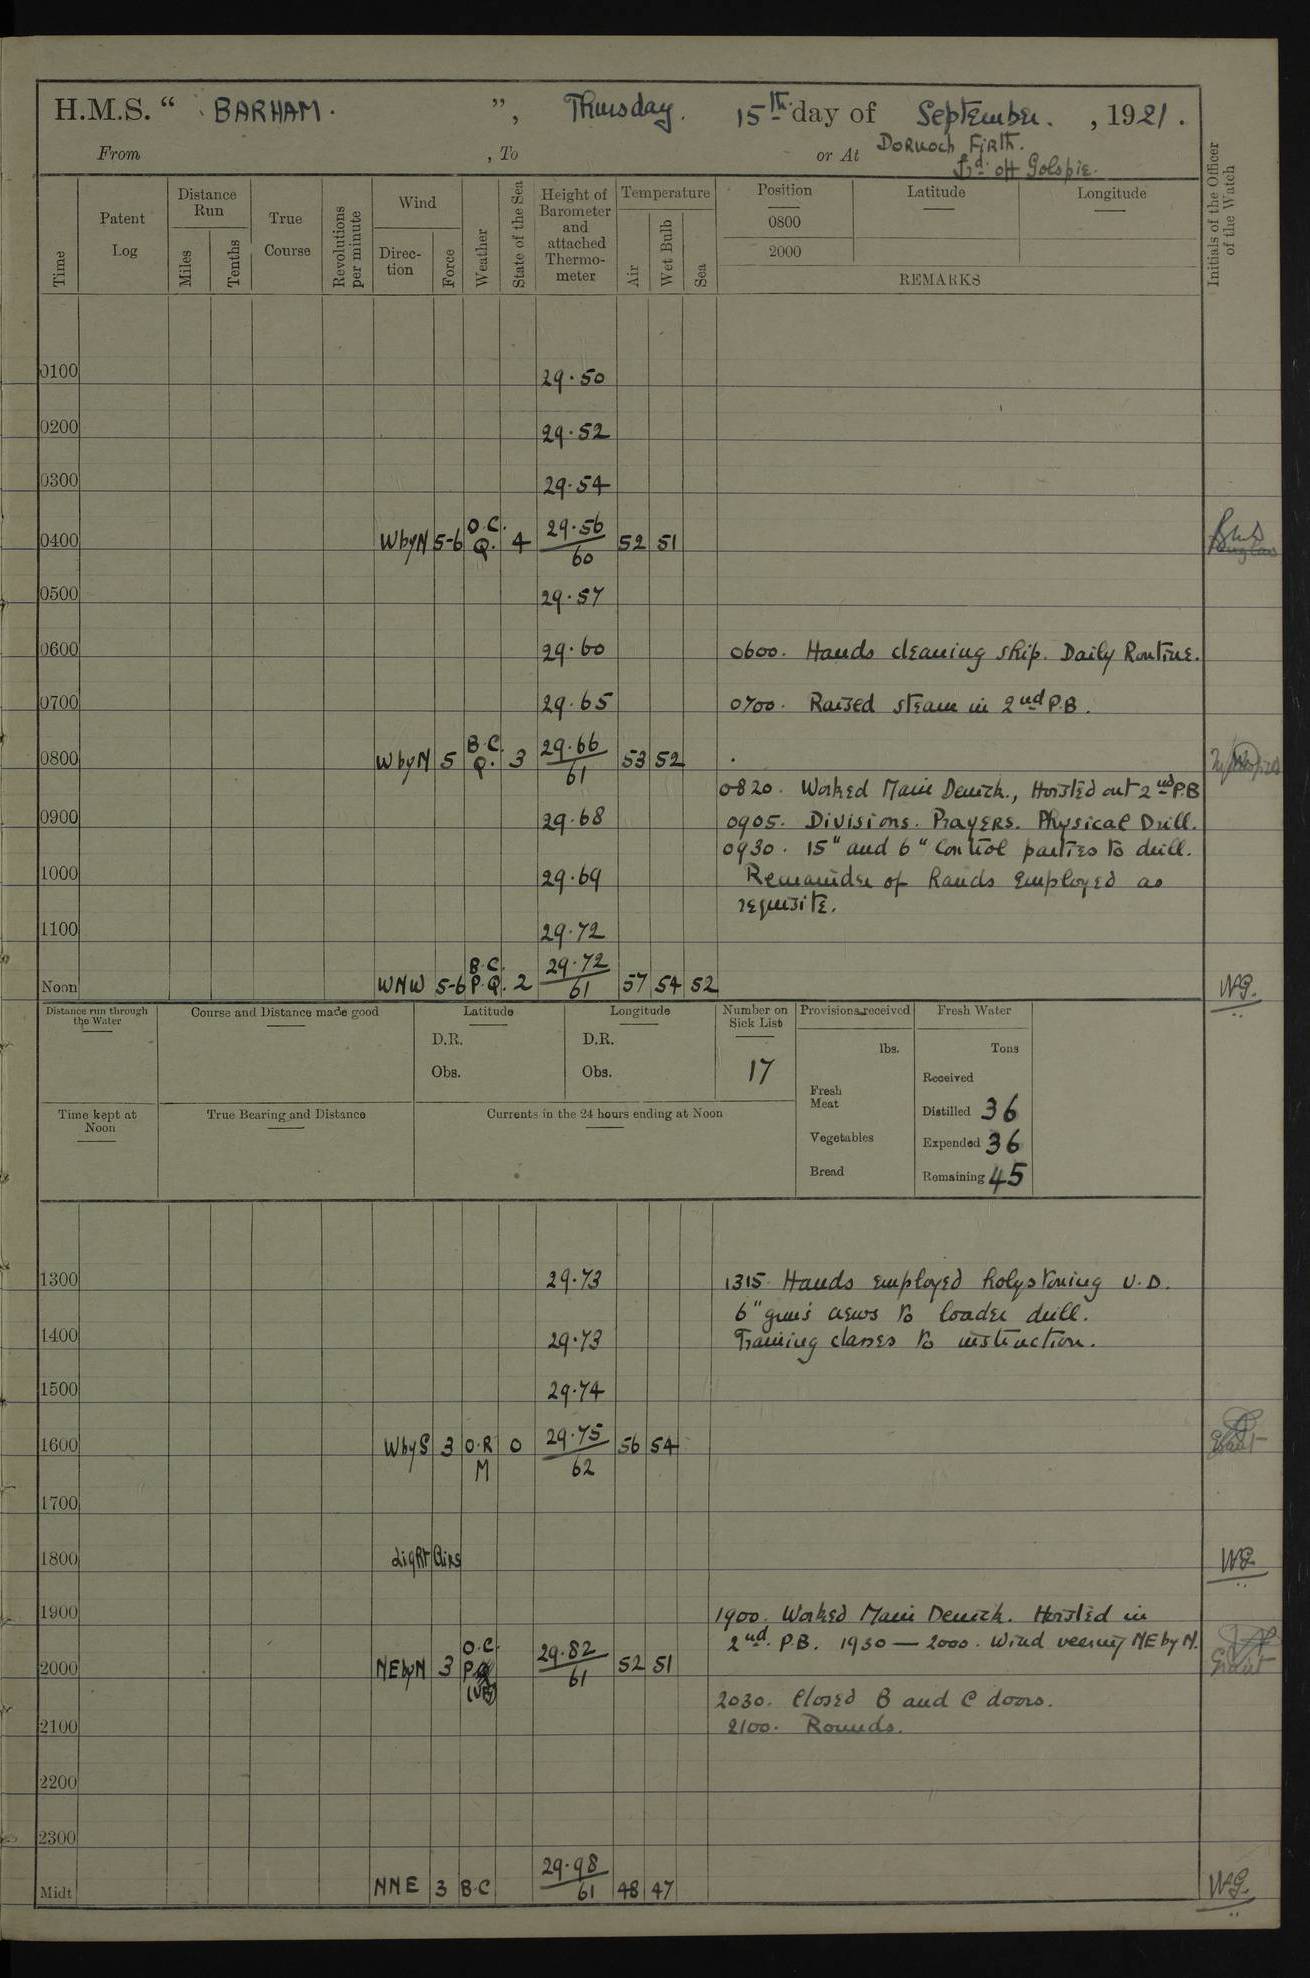 H.M.S. “ BARHAM. ”, Thursday. 15th day of September. , 1921.
From , To or At Dornoch Firth.
off Golspie.
Time
Patent Log
Distance Run
Miles
Tenths
True Course
Revolutions per minute
Wind
Direction
Force
Weather
State of the Sea
Height of Barometer and attached Thermometer
Temperature
Air
Wet Bulb
Sea
Position
0800
2000
Latitude
Longitude
REMARKS
Initials of the Officer of the Watch
0100 29.50
0200 29.52
0300 29.54
0400 WbyN 5-6 O.C. Q. 4 29.56/60 52 51
0500 29.57
0600 29.60 0600. Hands cleaning ship. Daily Routine.
0700 29.65 0700. Raised steam in 2nd P.B.
0800 WbyN 5 B.C. Q. 3 29.66/61 53 52
0820. Worked Main Derrick., Hoisted out 2nd P.B
0900 29.68 0905. Divisions. Prayers. Physical Drill.
0930. 15" and 6" Control parties to drill.
1000 29.69 Remainder of hands employed as
requisite.
1100 29.72
Noon WNW 5-6 B.C. P.Q. 2 29.72/61 57 54 52 W.G.
Distance run through the Water
Course and Distance made good
Latitude
D.R.
Obs.
Longitude
D.R.
Obs.
Number on Sick List
17
Provisions received
lbs.
Fresh Meat
Vegetables
Bread
Fresh Water
Tons
Received
Distilled 36
Expended 36
Remaining 45
Time kept at Noon
True Bearing and Distance
Currents in the 24 hours ending at Noon
1300 29.73 1315. Hands employed holystoning U.D.
6" gun's crews to loader drill.
1400 29.73 Training classes to instruction.
1500 29.74
1600 WbyS 3 O.R M 0 29.75/62 56 54
1700
1800 Light Airs W.G.
1900 1900. Worked Main Derrick. Hoisted in
2nd. P.B. 1930 — 2000. Wind veering NE by N.
2000 NEbyN 3 O.C. 29.82/61 52 51 Grant
2030. Closed B and C doors.
2100 2100. Rounds.
2200
2300
Midt NNE 3 B.C 29.98/61 48 47 W.G.